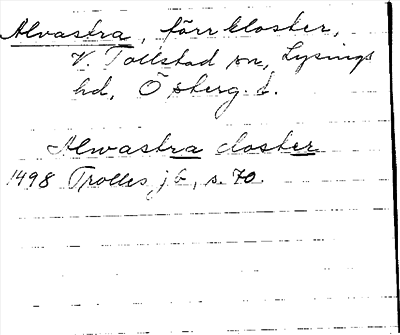 Alvastra, förr kloster,
V. Tollstad sn, Lysings
hd, Ösberg. l.
Alwastra closter
1498 Trolles jb, s. 70.